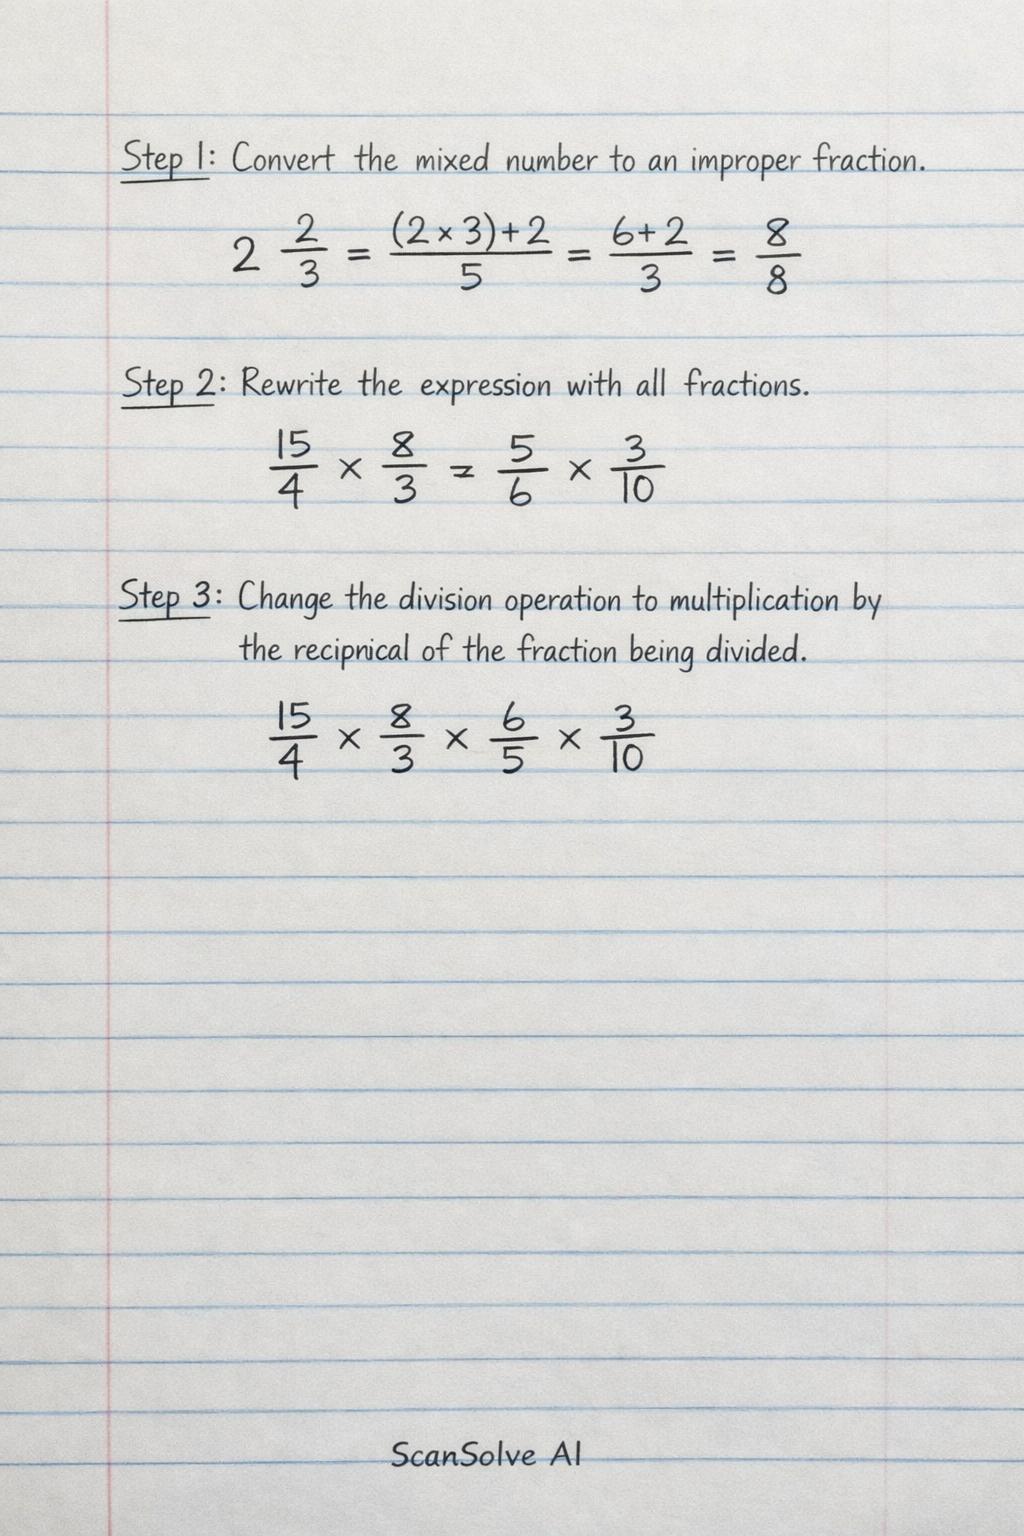 Step 1: Convert the mixed number to an improper fraction.
2 2/3 = (2 × 3) + 2/5 = 6 + 2/3 = 8/8
Step 2: Rewrite the expression with all fractions.
15/4 × 8/3 = 5/6 × 3/10
Step 3: Change the division operation to multiplication by
the recipnical of the fraction being divided.
15/4 × 8/3 × 6/5 × 3/10
ScanSolve AI